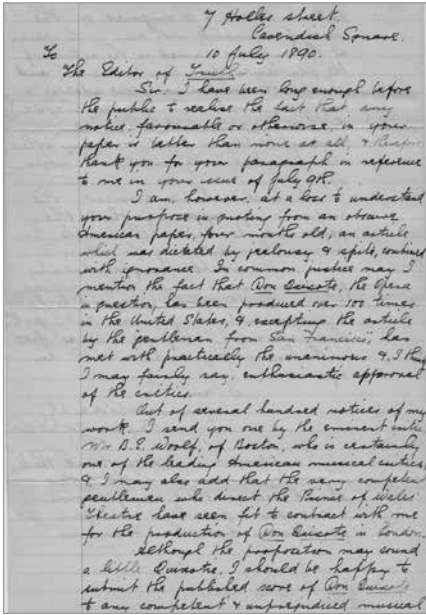 7 Holles street.
Cavendish Square.
To 10 July 1890.
The Editor of Truth
Sir. I have been long enough before
the public to realise the fact that any
notice, favourable or otherwise, in your
paper is better than none at all, & therefore
thank you for your paragraph in reference
to me in your issue of July 9th.
I am, however, at a loss to understand
your purpose in quoting from an obscure
American paper, four months old, an article
which was dictated by jealousy & spite, combined
with ignorance. In common justice may I
mention the fact that Don Quixote, the Opera
in question, has been produced over 100 times
in the United States, &, excepting the article
by the gentleman from San Francisco, has
met with practically the unanimous &, I think
I may fairly say, enthusiastic approval
of the critics.
Out of several hundred notices of my
work, I send you one by the eminent critic,
Mr B.E. Woolf, of Boston, who is certainly
one of the leading American musical critics,
& I may also add that the very competent
gentlemen who direct the Prince of Wales'
Theatre have seen fit to contract with me
for the production of Don Quixote in London.
Although the proposition may sound
a little Quixotic, I should be happy to
submit the published score of Don Quixote
to any competent & unprejudiced musical